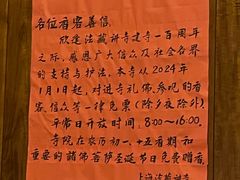 各位香客善信：
欣逢法藏讲寺建寺一百周年
之际，感恩广大信众及社会各界
的支持与护法。本寺从2024年
1月1日起，对进寺礼佛、参观的香
客、信众等一律免票（除夕夜除外）
平常日开放时间：8:00～16:00。
寺院在农历初一、十五香期和
重要的诸佛菩萨圣诞节日免费赠香。
上海法藏讲寺